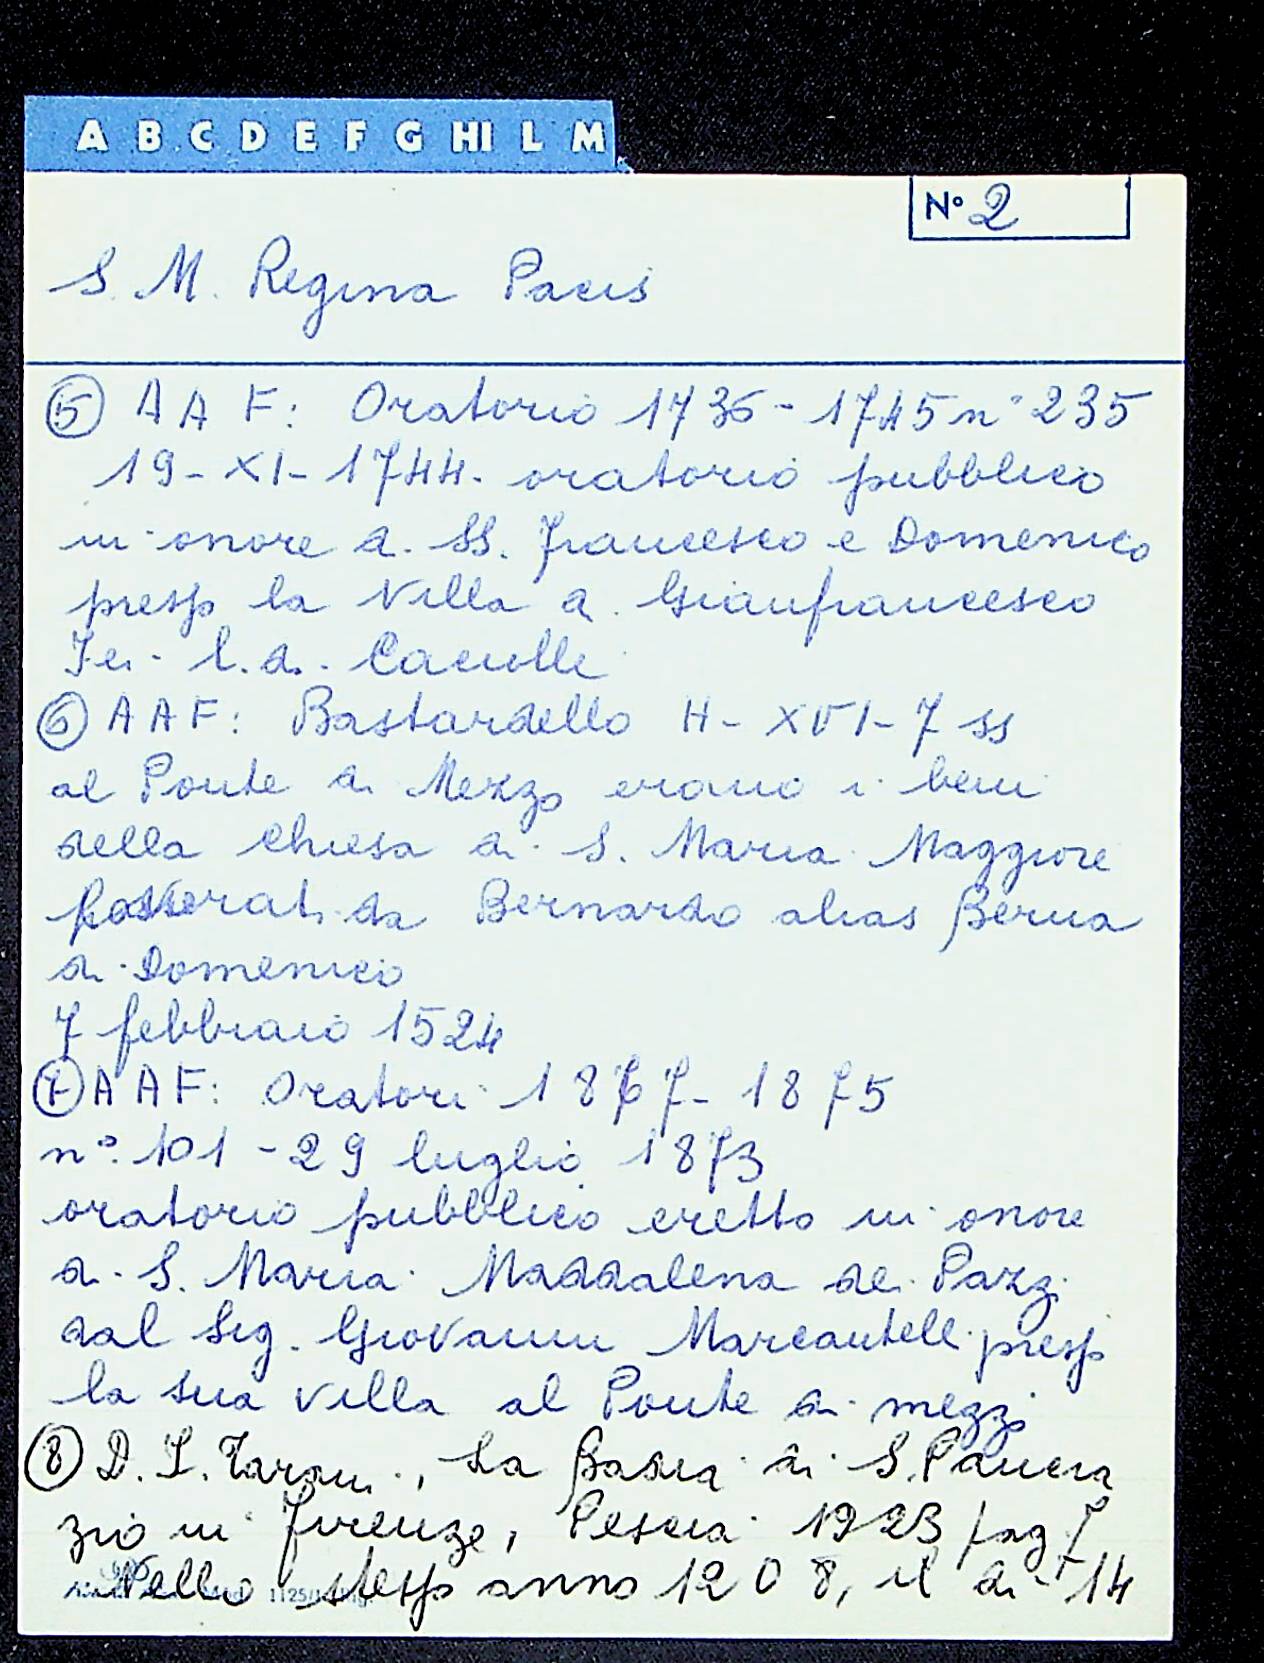 A B C D E F G HI L M
N° 2
S. M. Regina Pacis
5 A A F: Oratorio 1736-1745 n° 235
19-XI-1744. oratorio pubblico
in onore di SS. Francesco e Domenico
presso la Villa di Gianfrancesco
Fei l. d. Caciolle
6 A A F: Bastardello H-XVI-7 ss
al Ponte di Mezzo erano i beni
della Chiesa di S. Maria Maggiore
da Bernardo alias Berna
di Domenico
7 febbraio 1524
7 A A F: Oratori 1867-1875
n°. 101 - 29 luglio 1873
oratorio pubblico eretto in onore
di S. Maria Maddalena de Pazzi
dal Sig. Giovanni Marcantelli presso
la sua villa al Ponte di mezzo
8 D. I. Tarani, La Badia di S. Pancra
zio in Firenze, Pescia 1923 pag 7
Nello stesso anno 1208, il di 14